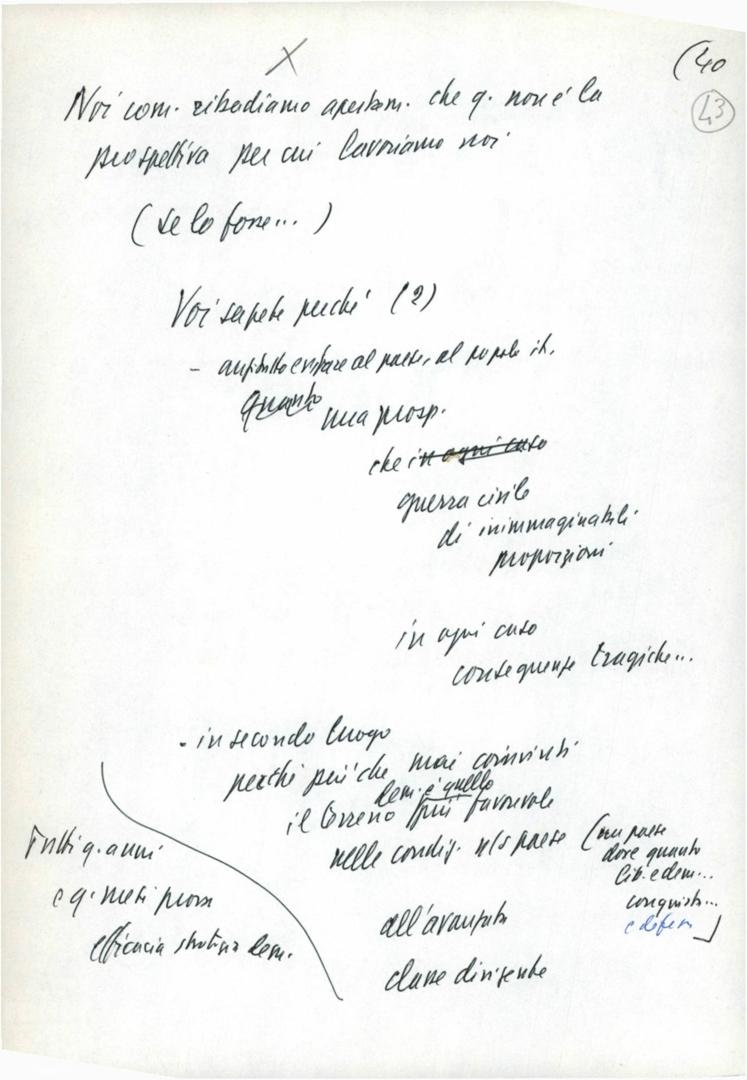 X
(40
43
Noi com. ribadiamo apertam. che q. non è la
prospettiva per cui lavoriamo noi
(se lo fosse...)
Voi sapete perché (2)
- anzitutto evitare al paese, al popolo it.
quanto
una prosp.
che in ogni caso
guerra civile
di inimmaginabili
proporzioni
in ogni caso
conseguenze tragiche...
- in secondo luogo
perché più che mai convinti
dem. è quello
il terreno più favorevole
nelle condiz. n/s paese
(un paese
dove quanto
lib. e dem...
conquist...
e difesa
all'avanzata
classe dirigente
Tutti q. anni
e q. mesi prova
efficacia strategia dem.